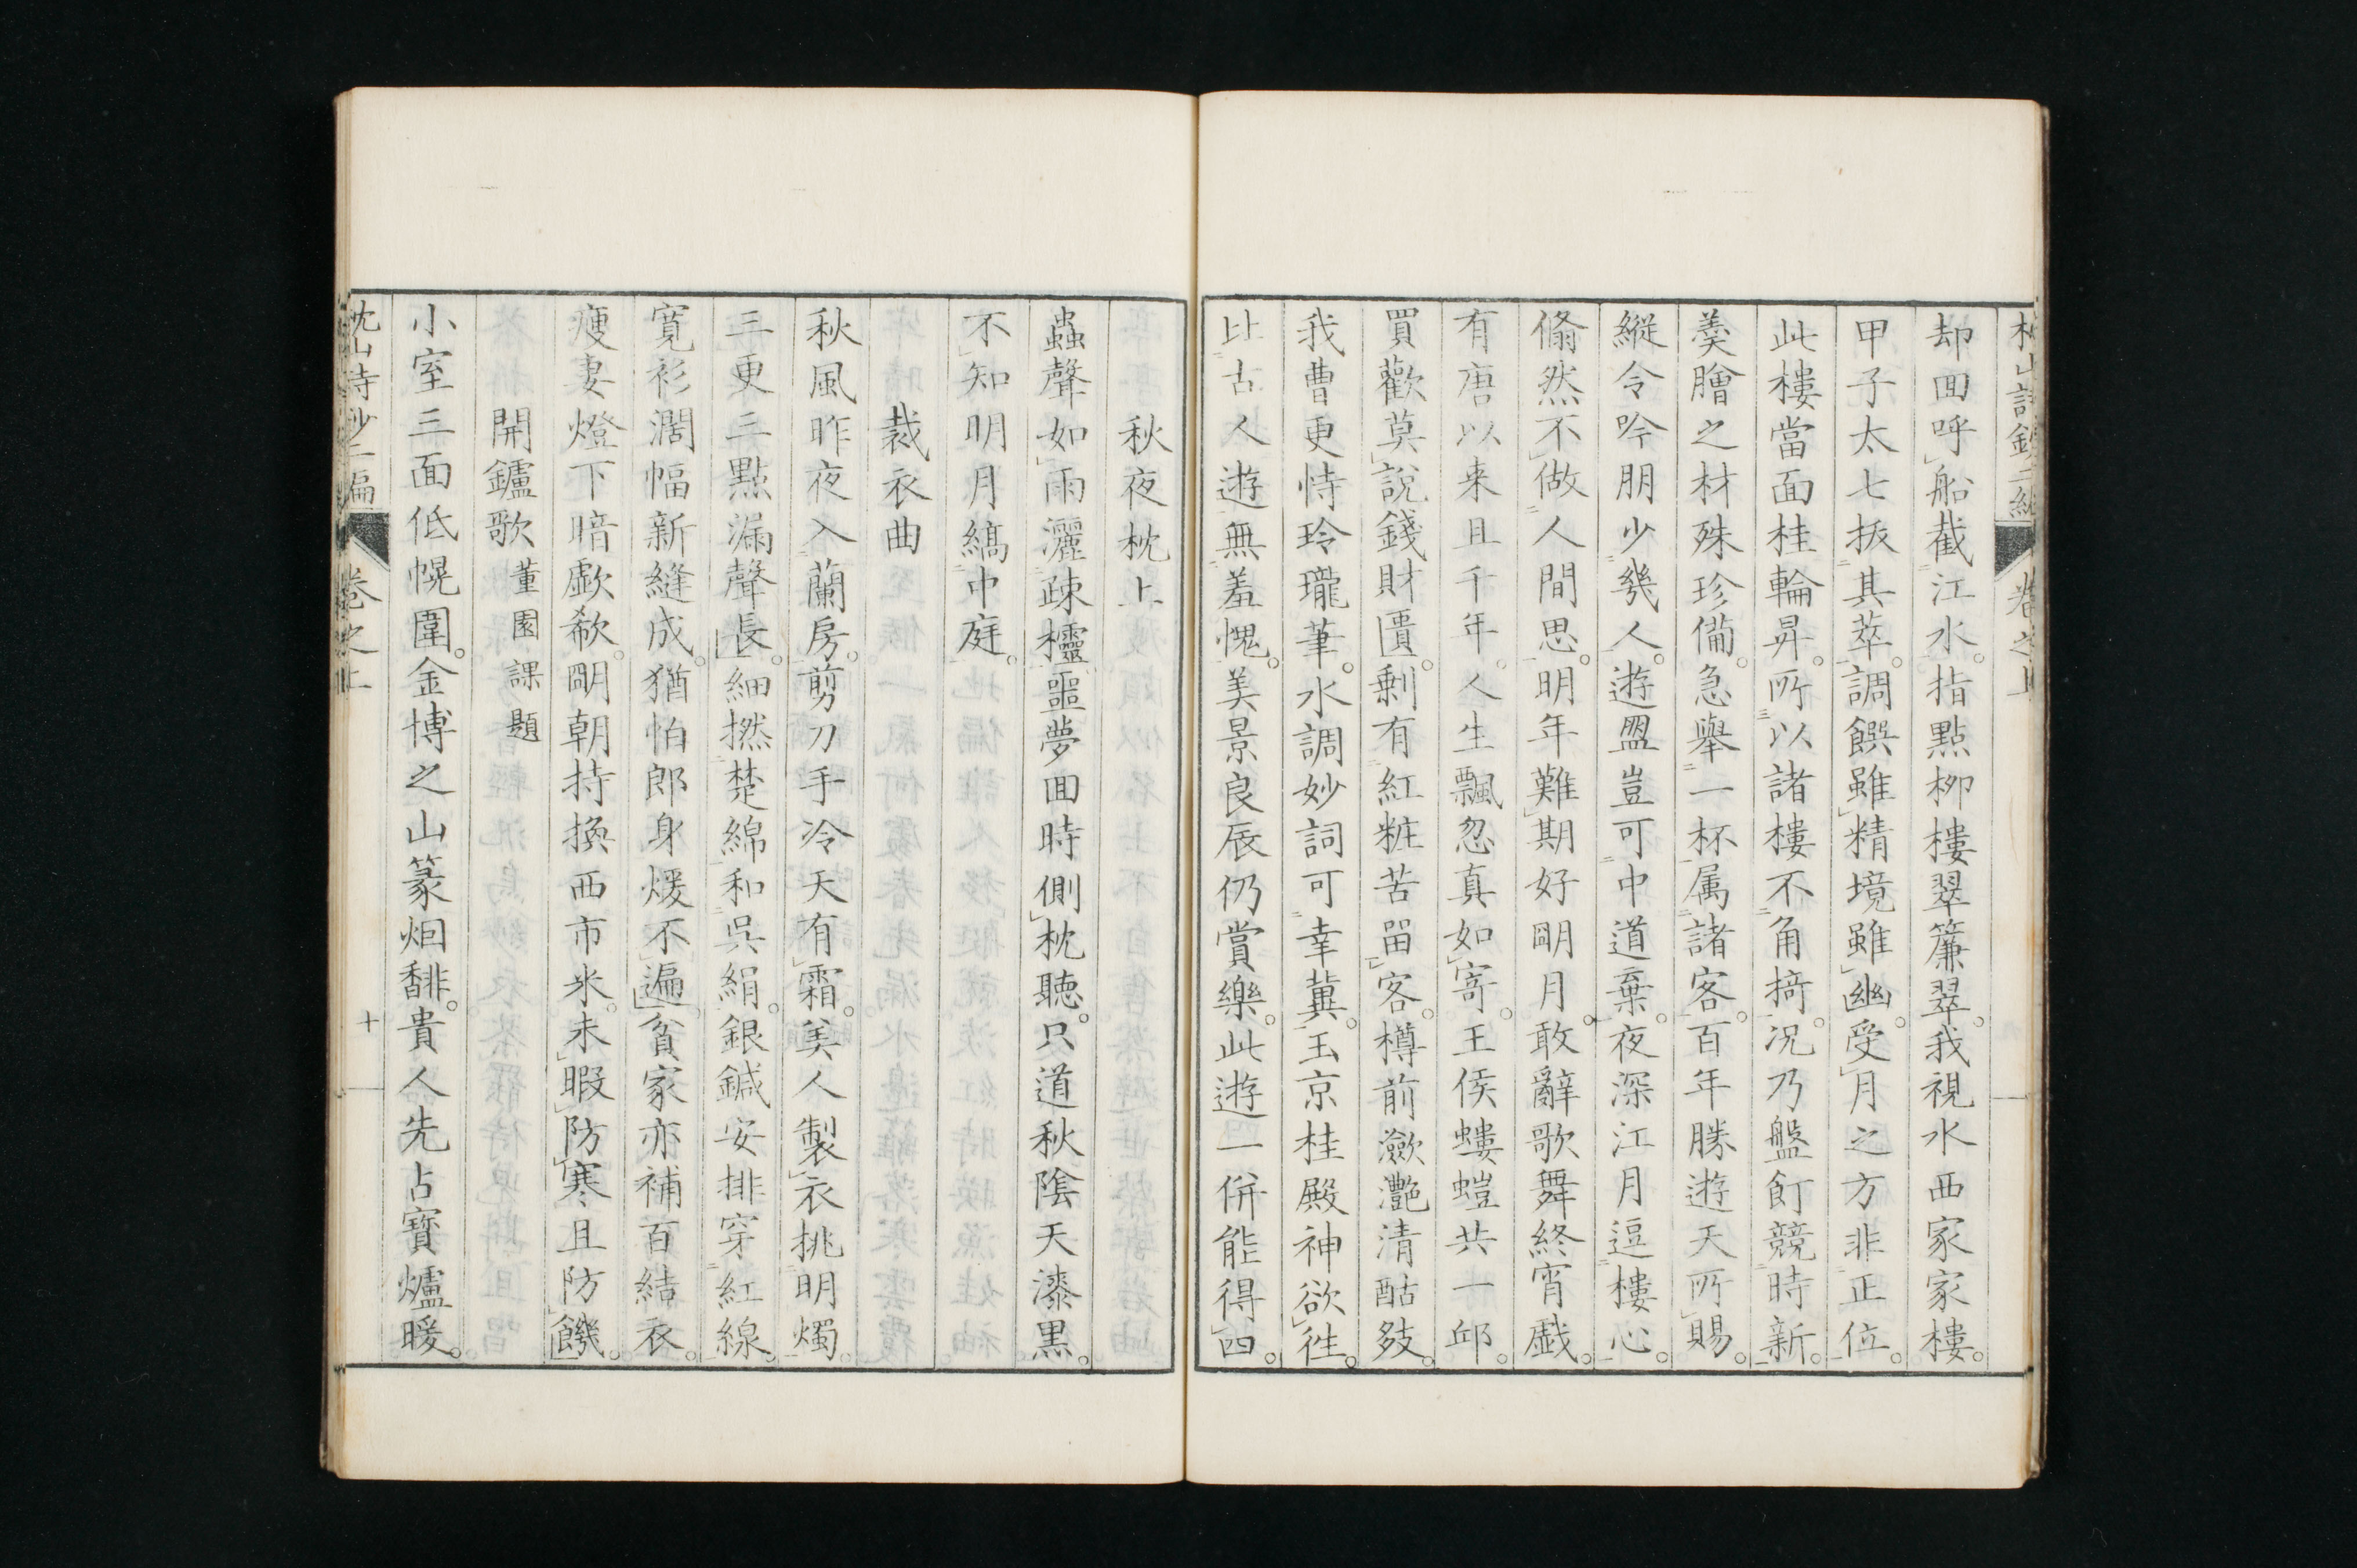 枕山詩鈔二編 卷之上
却回呼船截江水。指點柳樓翠簾翠。我視水西家家樓。
甲子太七拔其萃。調饌雖精境雖幽。受月之方非正位。
此樓當面桂輪昇。所以諸樓不角掎。況乃盤飣競時新。
羹膾之材殊珍備。急舉一杯属諸客。百年勝遊天所賜。
縱令吟朋少幾人。遊盟豈可中道棄。夜深江月逗樓心。
翛然不做人間思。明年難期好朙月。敢辭歌舞終宵戯。
有唐以来且千年。人生飄忽真如寄。王侯螻螘共一邱。
買歡莫說錢財匱。剩有紅粧苦留客。樽前瀲灔清酤㱔。
我曹更恃玲瓏筆。水調妙詞可幸冀。玉京桂殿神欲徃。
比古人遊無羞愧。美景良辰仍賞樂。此遊一併能得四。
秋夜枕上
蟲聲如雨灑疎欞。噩夢回時側枕聽。只道秋陰天漆黒。
不知明月縞中庭。
裁衣曲
秋風昨夜入蘭房。剪刀手冷天有霜。美人製衣挑明燭。
三更三點漏聲長。細撚楚綿和呉絹。銀鍼安排穿紅線。
寛衫濶幅新縫成。猶怕郎身煖不遍。貧家亦補百結衣。
瘦妻燈下暗歔欷。朙朝持換西市米。未暇防寒且防饑。
開鑪歌 董園課題
小室三面低幌圍。金博之山篆烟馡。貴人先占寶爐暖。
枕山詩鈔二編 卷之上 十